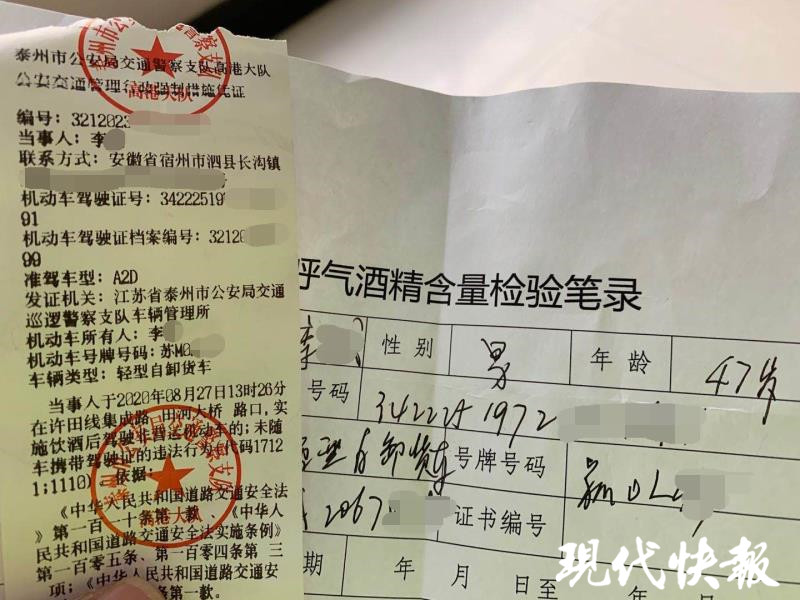 泰州市公安局交通警察支队高港大队
公安交通管理行政强制措施凭证
高港大队
编号: 3212023
当事人: 李
联系方式: 安徽省宿州市泗县长沟镇
机动车驾驶证号: 34222519
91
机动车驾驶证档案编号: 32120
99
准驾车型: A2D
发证机关: 江苏省泰州市公安局交通
巡逻警察支队车辆管理所
机动车所有人: 李
机动车号牌号码: 苏M0
车辆类型: 轻型自卸货车
当事人于2020年08月27日13时26分
在许田线集成路—田河大桥 路口,实
施饮酒后驾驶非营运机动车的;未随
车携带驾驶证的违法行为(代码1712
1;1110) 依据:
《中华人民共和国道路交通安全法
》第一百一十条第一款、《中华人
民共和国道路交通安全法实施条例》
第一百零五条、第一百零四条第 三
项;《中华人民共和国道路交通安
条第一款。
高港大队
呼气酒精含量检验笔录
李 性别 男 年龄 47岁
号码 3422251972
型自卸货车 号牌号码
2067 证书编号
期 年 月 日至 年
现代快报